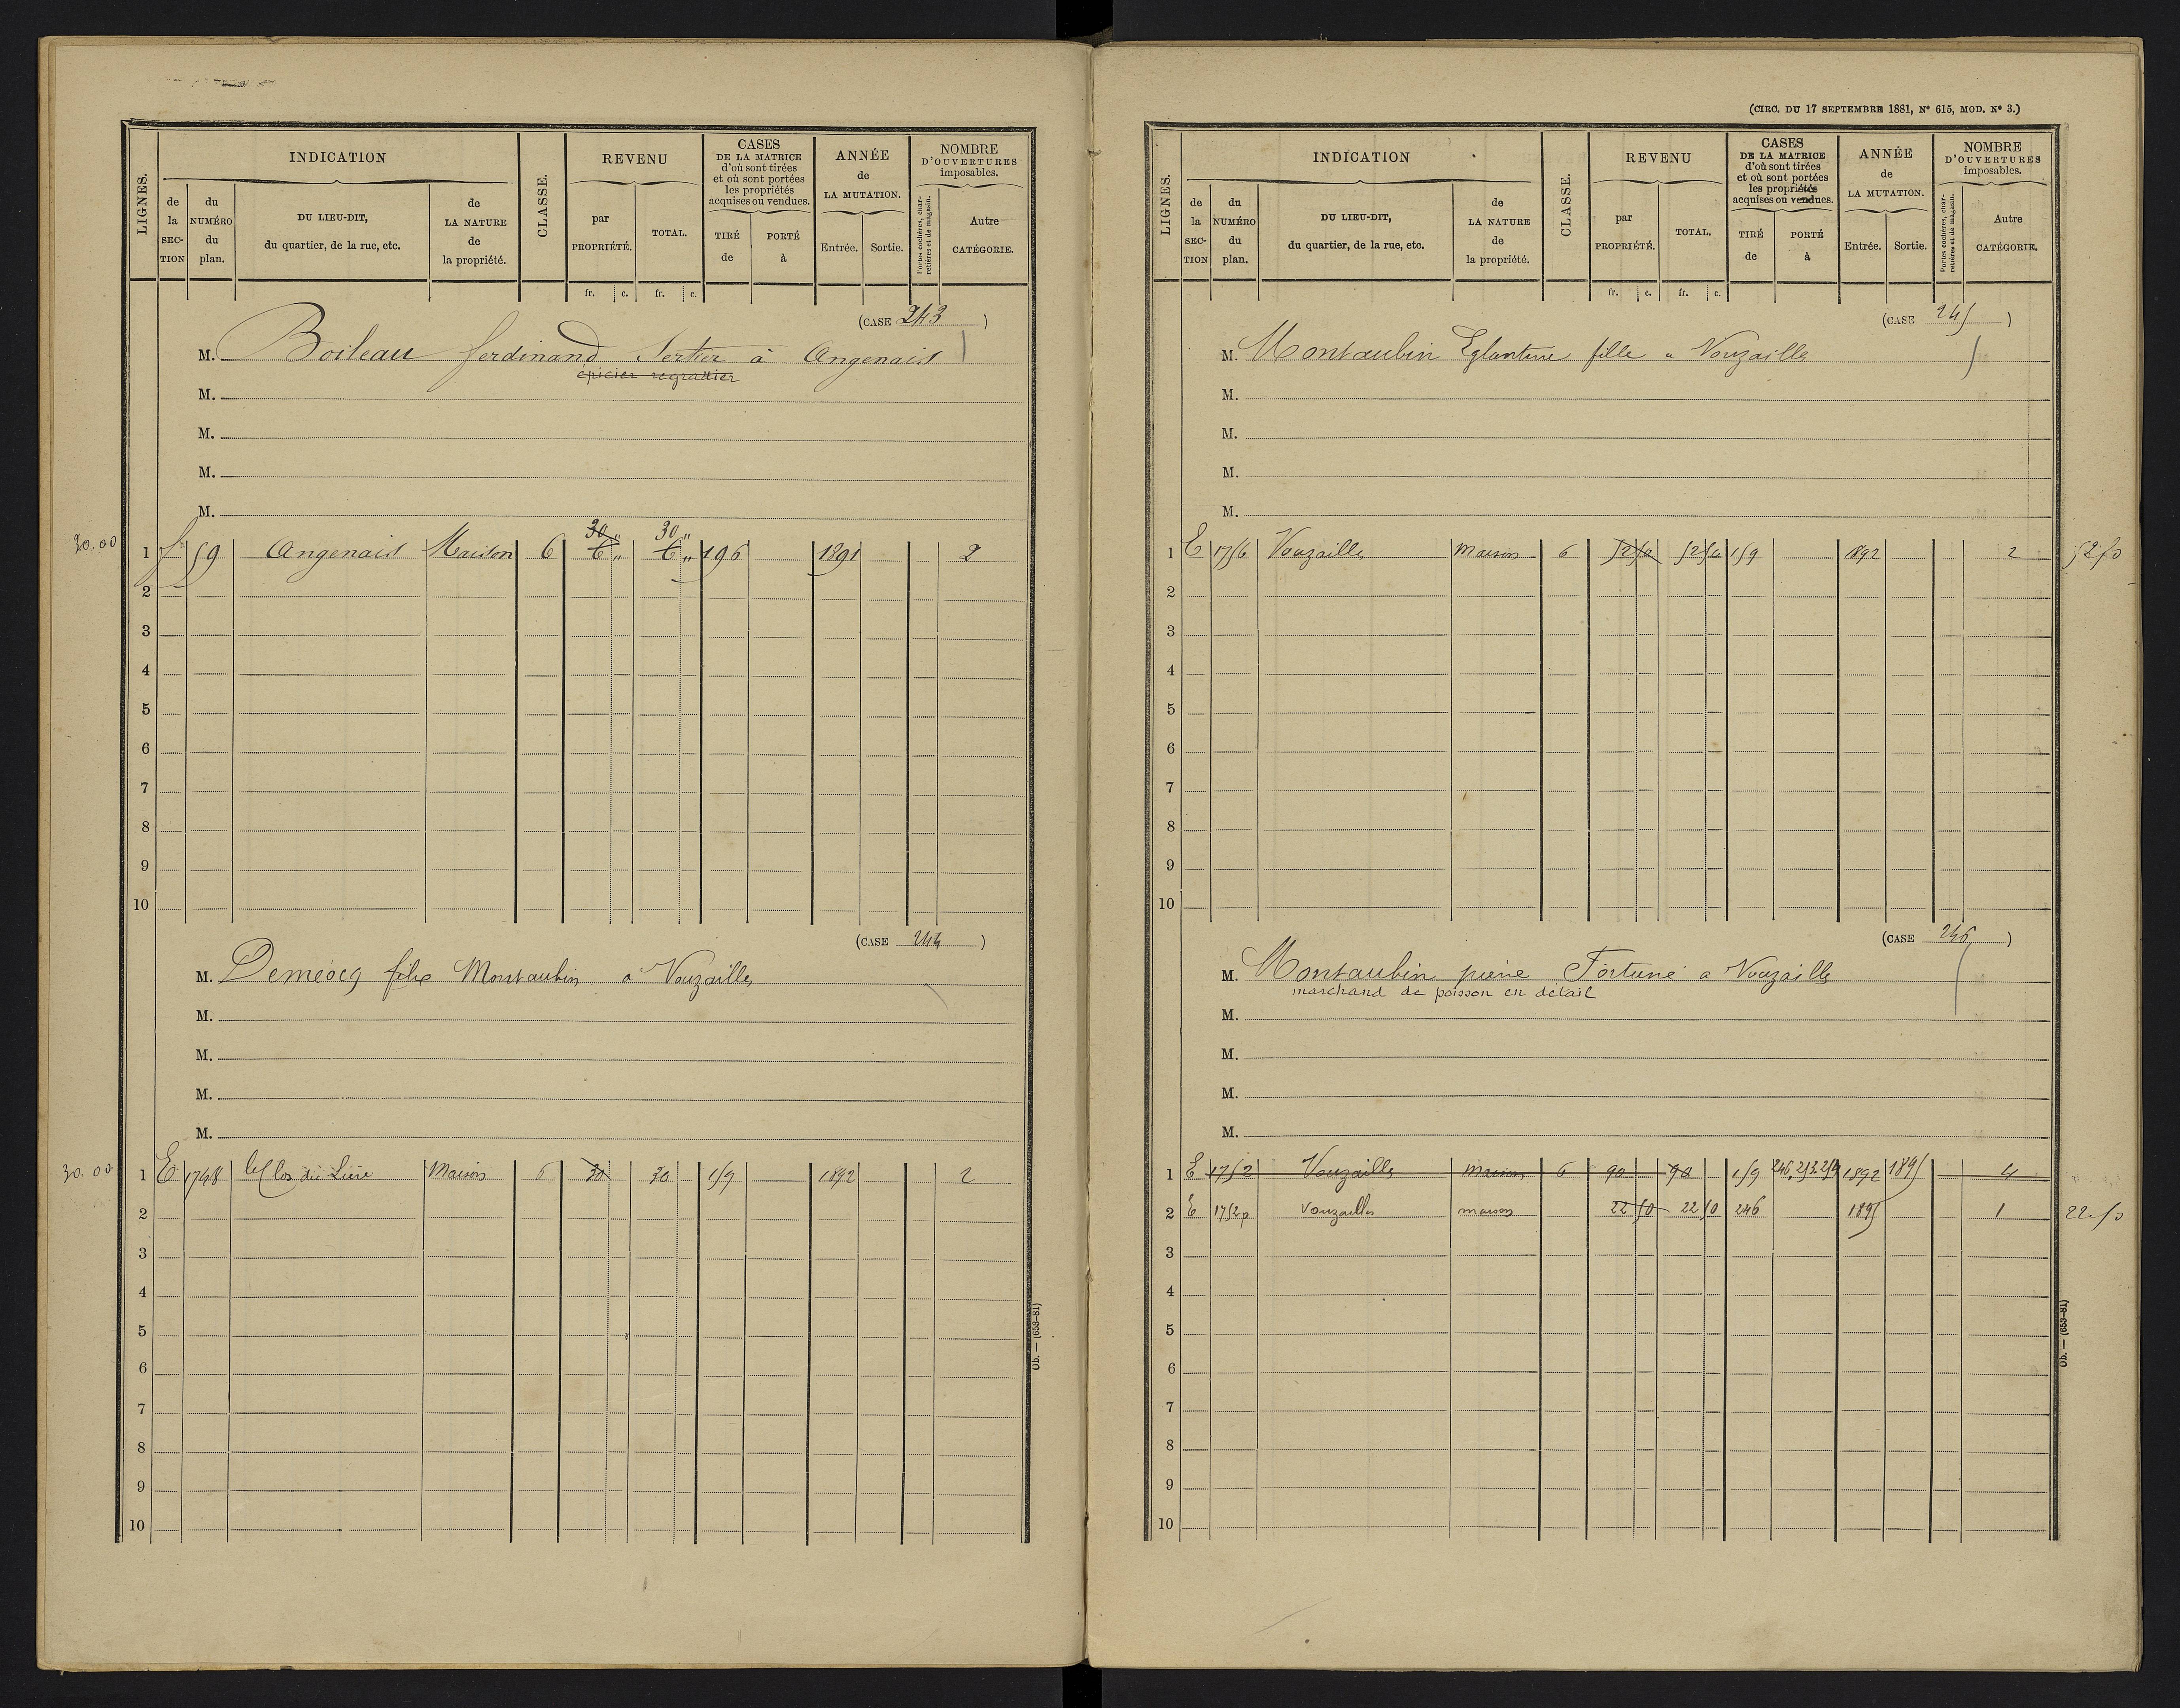 LIGNES.
INDICATION
de la SEC-TION
du NUMÉRO du plan.
DU LIEU-DIT, du quartier, de la rue, etc.
de LA NATURE de la propriété.
CLASSE.
REVENU
par PROPRIÉTÉ.
TOTAL.
CASES DE LA MATRICE d'où sont tirées et où sont portées les propriétés acquises ou vendues.
TIRÉ de
PORTÉ à
ANNÉE de LA MUTATION.
Entrée. Sortie.
NOMBRE D'OUVERTURES imposables.
Portes cochères, charretières et de magasin.
Autre CATÉGORIE.
fr. c. fr. c.
(CASE 243)
M. Boileau ferdinand à Angenais
épicier regrattier
M.
M.
M.
M.
30 " 30 "
30.00 1 59 Angenais Maison 6 6 " 6 " 196 1891 2
2
3
4
5
6
7
8
9
10
(CASE 244)
M. Demeocq Montaubin a Vouzailles
M.
M.
M.
M.
30.00 1 E 1748 le Clos du Maison 6 30 30 159 1892 2
2
3
4
5
6
7
8
9
10
Ob. — (653-81)
(CIRC. DU 17 SEPTEMBRE 1881, N° 615, MOD. N° 3.)
LIGNES.
INDICATION
de la SEC-TION
du NUMÉRO du plan.
DU LIEU-DIT, du quartier, de la rue, etc.
de LA NATURE de la propriété.
CLASSE.
REVENU
par PROPRIÉTÉ.
TOTAL.
CASES DE LA MATRICE d'où sont tirées et où sont portées les propriétés acquises ou vendues.
TIRÉ de
PORTÉ à
ANNÉE de LA MUTATION.
Entrée. Sortie.
NOMBRE D'OUVERTURES imposables.
Portes cochères, charretières et de magasin.
Autre CATÉGORIE.
fr. c. fr. c.
(CASE 245)
M. Montaubin Eglantine fille a Vouzailles
M.
M.
M.
M.
1 E 1756 Vouzailles maison 6 52 50 52 50 159 1892 2 52 50
2
3
4
5
6
7
8
9
10
(CASE 246)
M. Montaubin pierre Fortuné a Vouzailles
marchand de poisson en détail
M.
M.
M.
M.
1 E 1752 Vouzailles maison 6 90 90 159 246, 253, 254 1892 1895 4
2 E 1752p Vouzailles maison 22 50 22 50 246 1895 1 22.50
3
4
5
6
7
8
9
10
Ob. — (653-81)